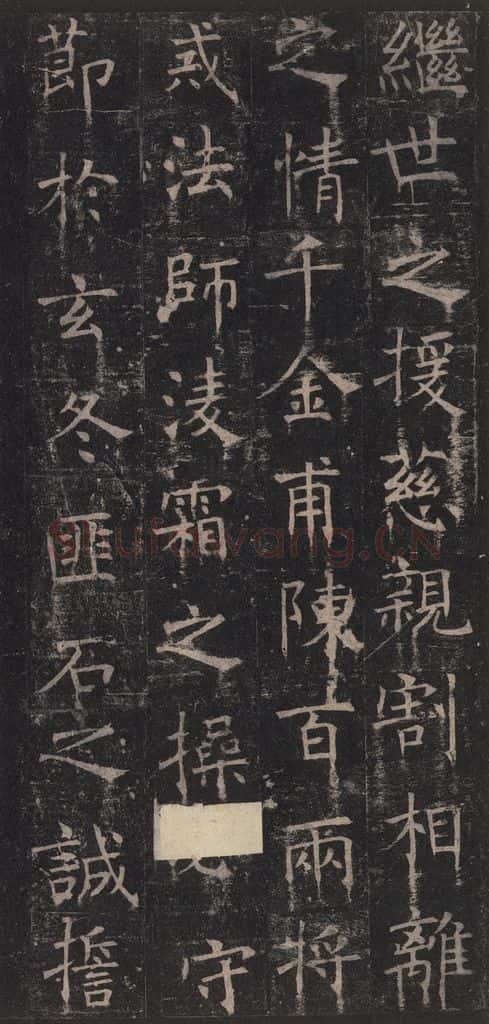 繼世之援慈親割相離
之情千金甫陳百兩将
戒法師淩霜之操守
莭於玄冬匪石之誠擔
Shufawang.CN